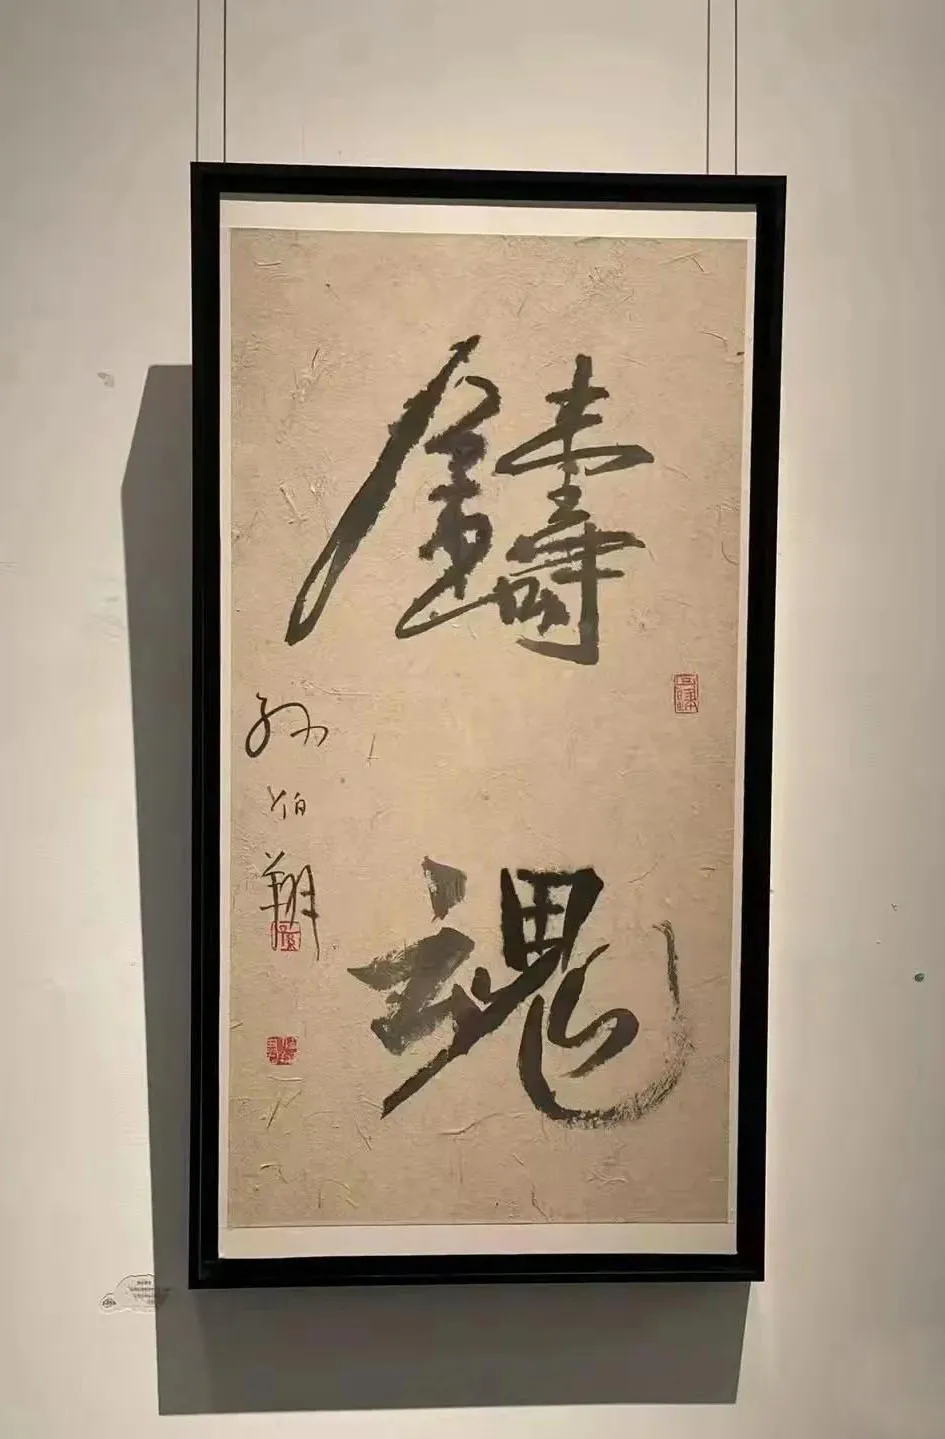 鑄魂
孫伯翔